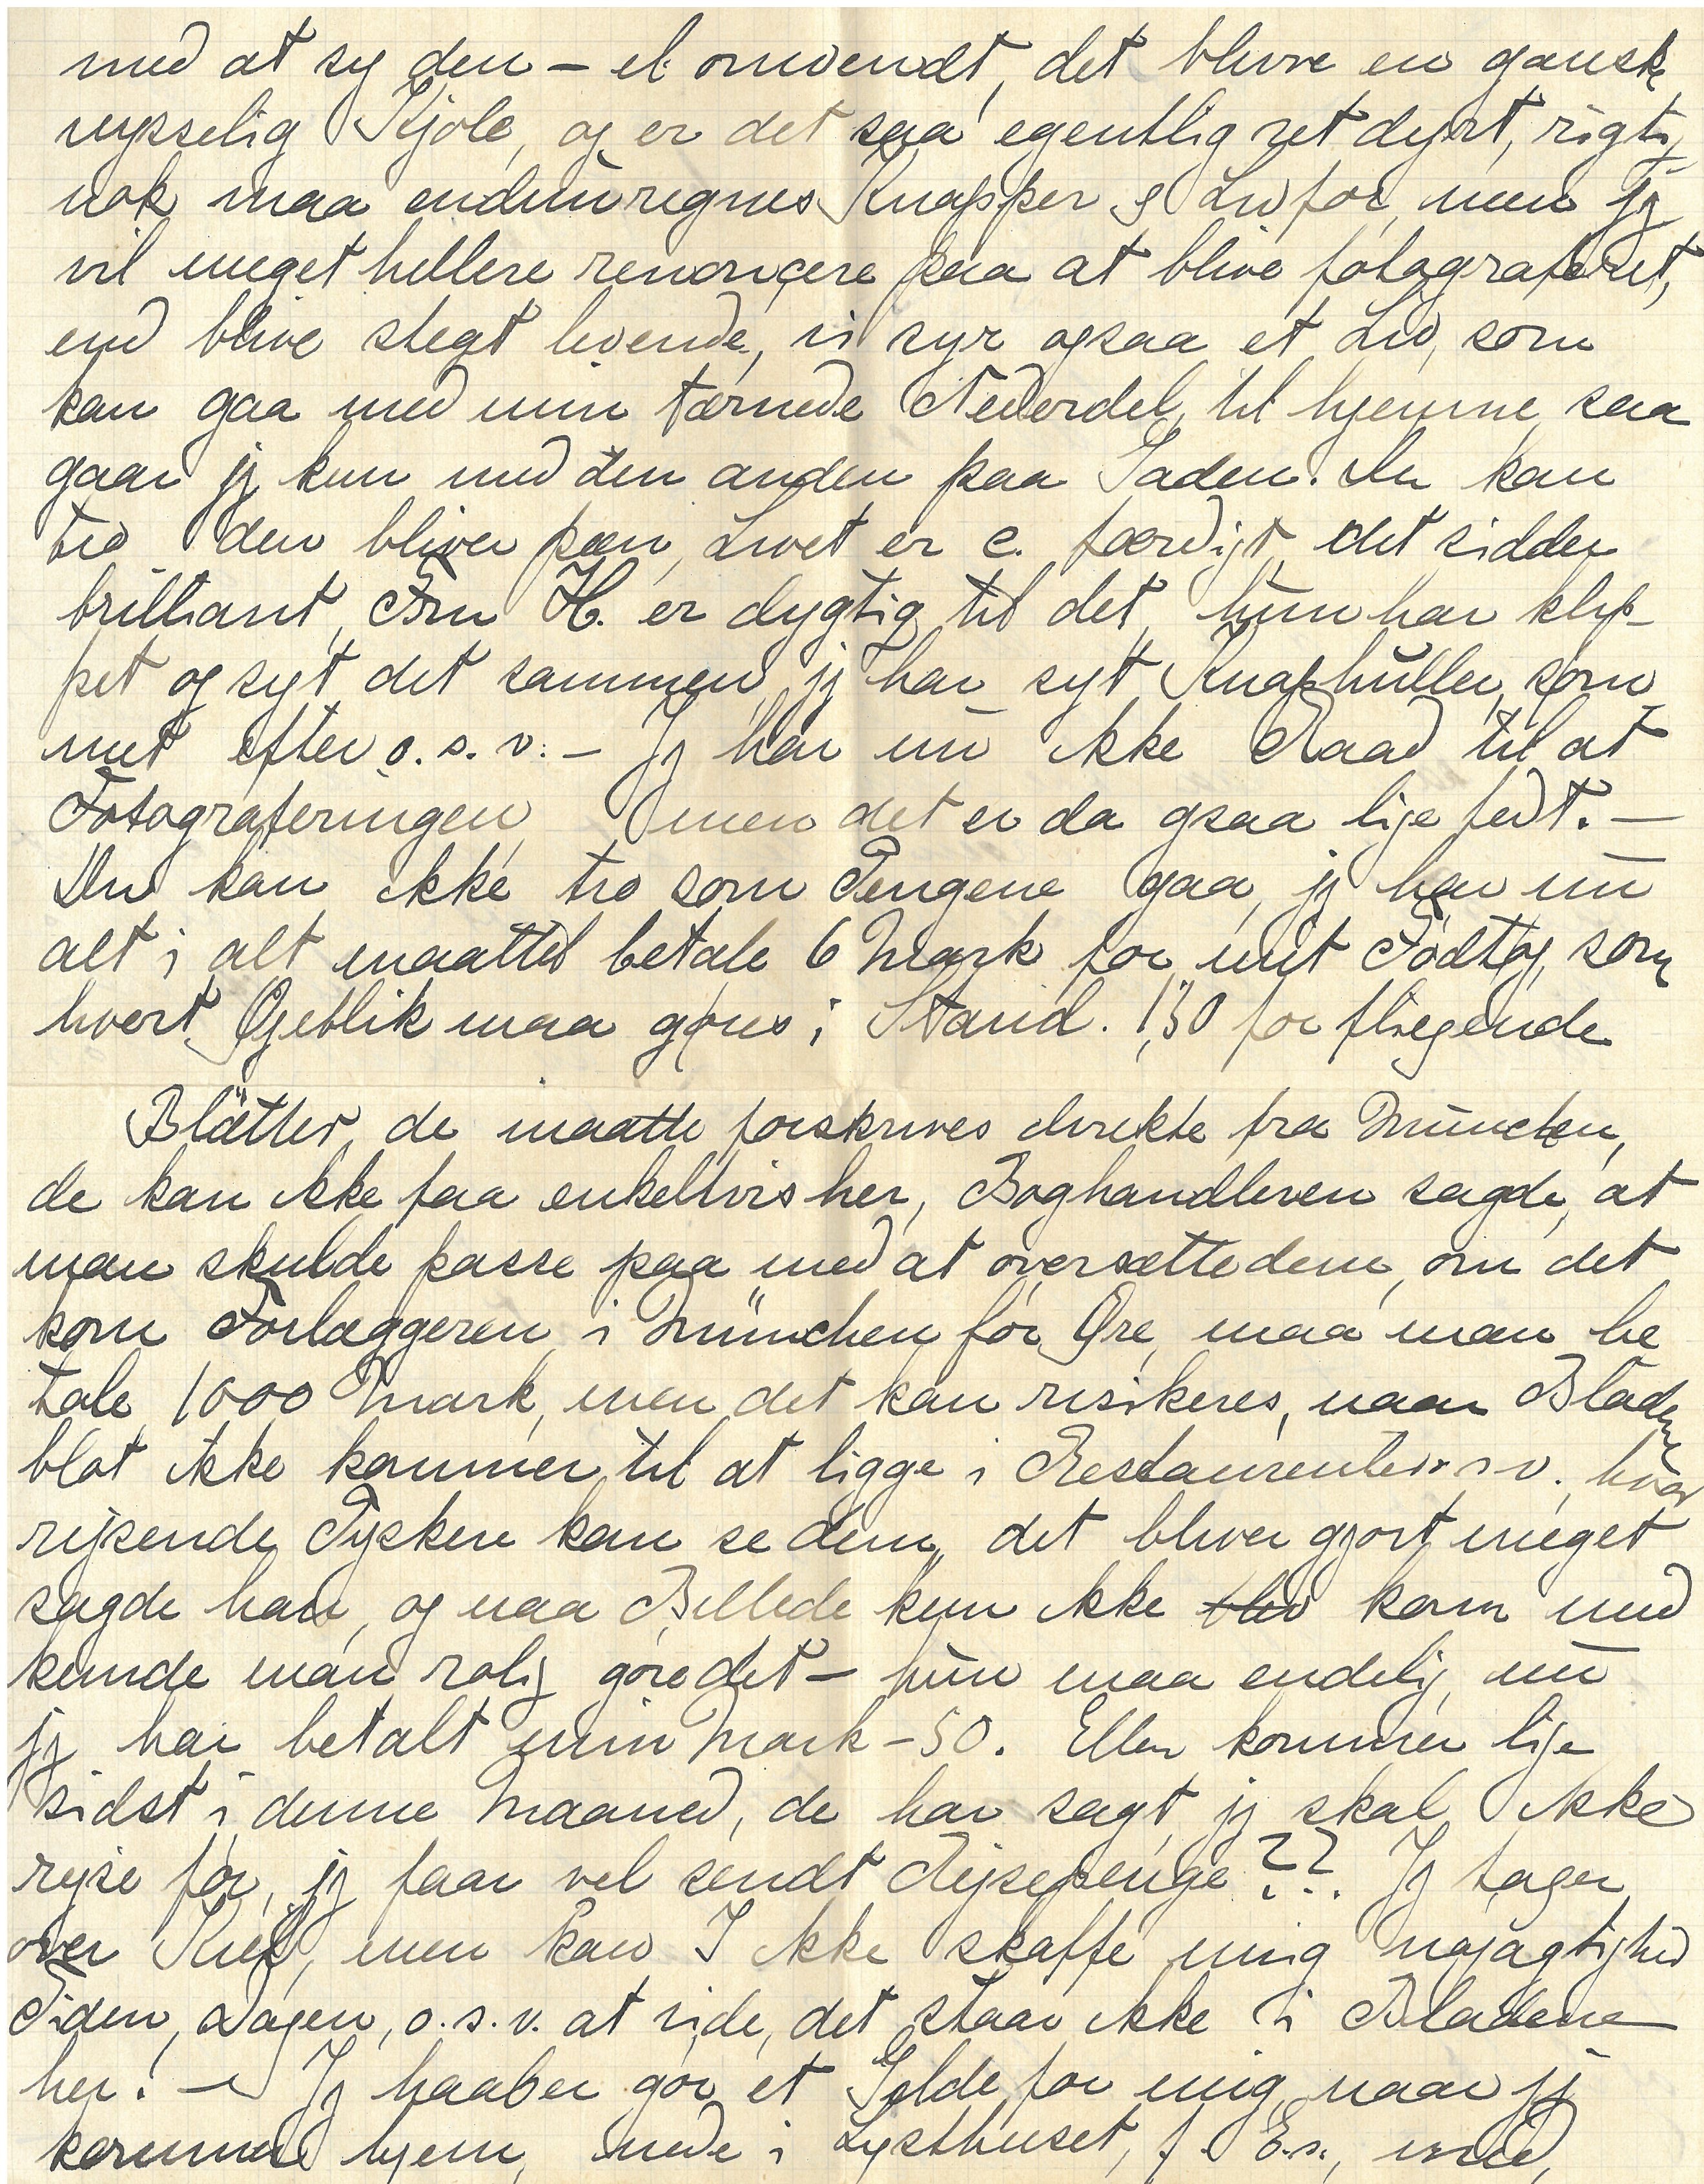 med at sy den – el. omvendt, det bliver en ganske
nysselig Kjole, og er det saa egentlig ret dyrt, rigtig
nok maa endnu regnes Knapper & Liv for, men jg
vil meget hellere renoncere paa at blive fotograferet,
end blive stegt levende, vi syr ogsaa et Liv, som
kan gaa med min tærnede Nederdel, til hjemme, saa
gaar jg kun med den anden paa Gaden. Du kan
tro den bliver pæn, Livet er c. færdigt, det sidder
brilliant, Fru H. er dygtig til det, hun har klip-
pet og syt det sammen, jg har syt Knaphuller, søm
met efter o. s. v. – Jg har nu ikke Raad til at
Fotograferingen, men det er da gsaa lige fedt. –
Du kan ikke tro som Pengene gaa, jg har nu
alt i alt maattet betale 6 Mark for mit Fodtøj, som
hvert Øjeblik maa gøres i Stand. 1,30 for fliegende
Blätter, de maatte forskrives direkte fra München,
de kan ikke faa enkeltvis her, Boghandleren sagde, at
man skulde passe paa med at oversætte dem, om det
kom Forlæggeren i München for Øre, maa man be
tale 1000 Mark, men det kan risikeres, naar Bladene
blot ikke kommer til at ligge i Restaurenter o. s. v. hvor
rejsende Tyskere kan se dem, det bliver gjort meget
sagde han, og naa Billede kun ikke blev kom med
kunde man rolig gøre det – hun maa endelig, nu
jg har betalt min Mark – 50. Ellen kommer lige
sidst i denne Maaned, de har sagt, jg skal ikke
rejse før, jg faar vel sendt Rejsepenge?? Jg tager
over Kiel, men kan I ikke skaffe mig nøjagtighed
Tiden, Dagen, o. s. v. at vide, det staar ikke i Bladene
her! – Jg haaber gør et Gilde for mig, naar jg
kommer hjem, nede i Lysthuset, f. Eks., med